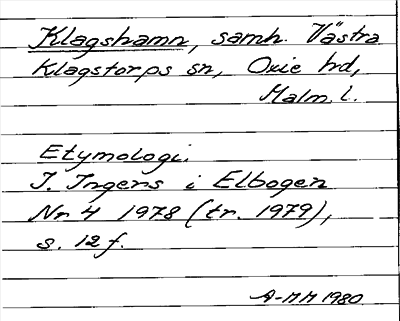 Klagshamn, samh. Västra
Klagstorps sn, Oxie hd,
Malm. l.
Etymologi.
I. Ingers i Elbogen
Nr 4 1978 (tr. 1979),
s. 12 f.
A-MM 1980